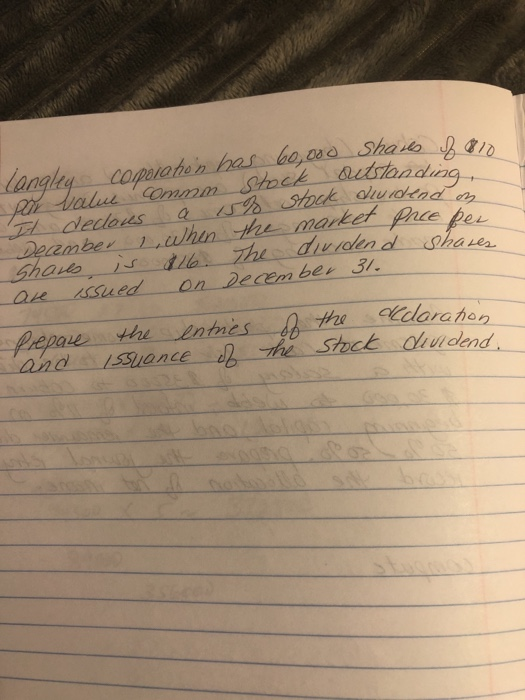 Langley corporation has 60,000 shares of $10
par value common stock outstanding.
It declares a 15% stock dividend on
December 1, when the market price per
shares is $16. The dividend shares
are issued on December 31.
Prepare the entries of the declaration
and issuance of the stock dividend.